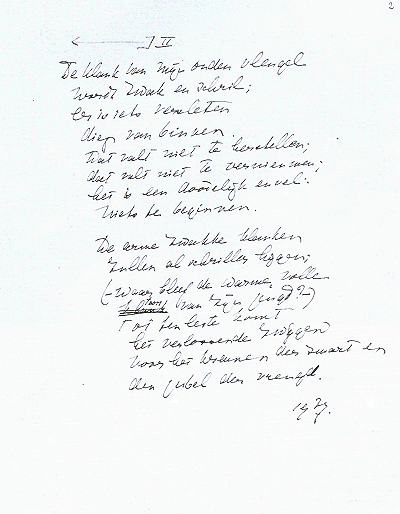 2
II
De klank van mijn ouden vleugel
wordt zwak en schril;
er is iets versleten
diep van binnen.
Dat valt niet te herstellen;
dat valt niet te vernieuwen;
het is een doodelijk euvel:
Niets te beginnen.
De arme zwakke klanken
zullen al schriller liggen;
(–waar bleef de warme, volle
van zijn jeugd?–)
Tot ten leste komt
het verlossende zwijgen
voor het kreunen der smart en
den jubel der vreugd.
1979.